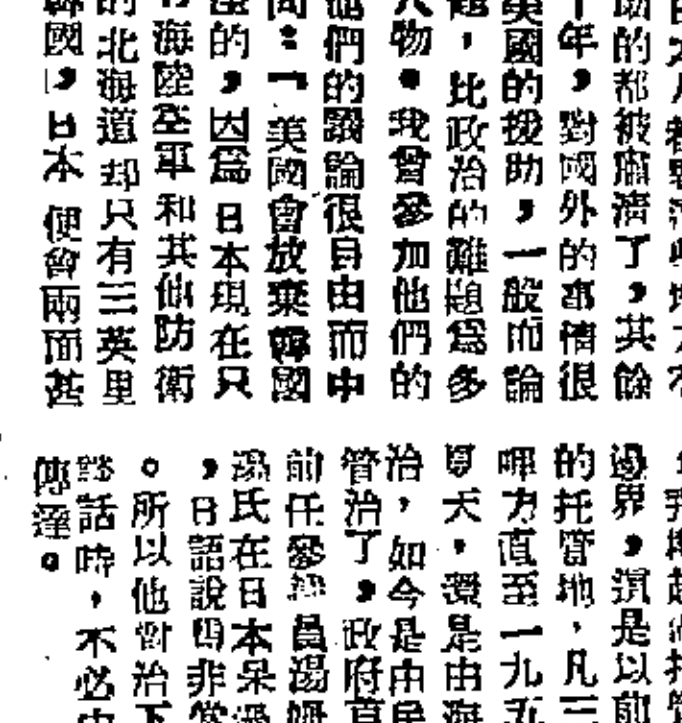 的都被肅清了,其餘
年,對國外的事情很
英國的援助,一般而論
題,比政治的難題爲多
物。我曾參加他們的
他們的議論很自由而中
問:「美國會放棄韓國
的,因爲日本現在只
海陸空軍和其他防衛
的北海道却只有三英里
韓國,日本便會兩面甚
過界,是以前
的托管地,凡三
力直至一九五
夏天,還是由海
治,如今是由民
管治了,政府首
前任參議員湯姆
湯氏在日本呆過
,日語說得非常
。所以他對治下
談話時,不必由
傳達。